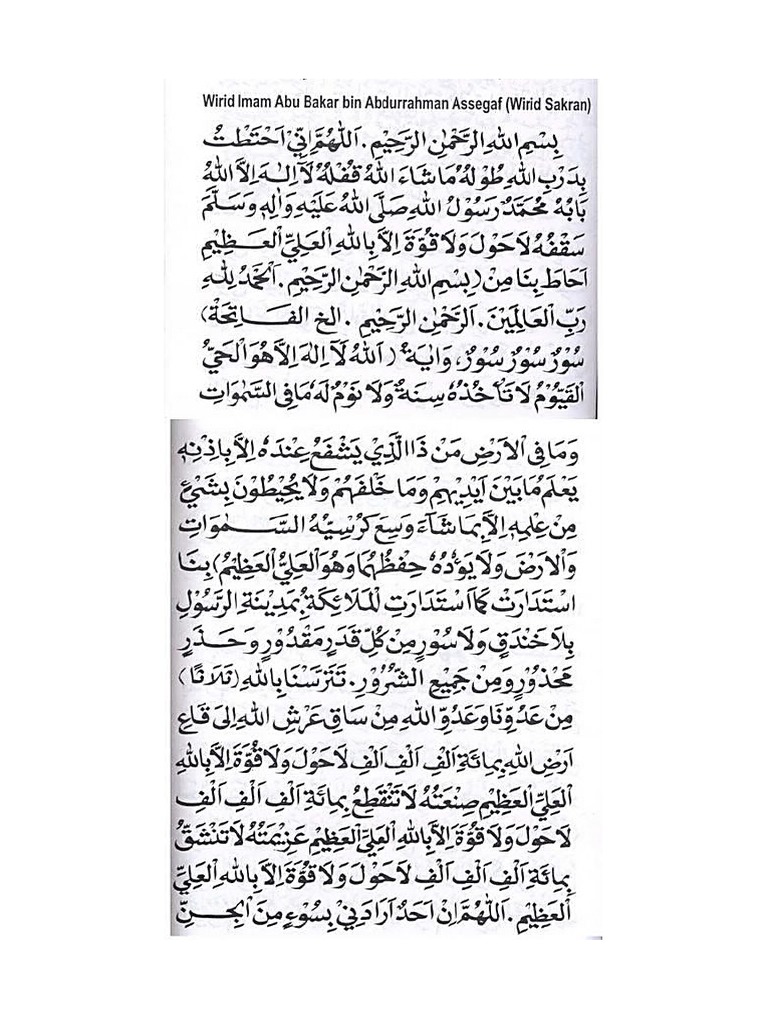 Wirid Imam Abu Bakar bin Abdurrahman Assegaf (Wirid Sakran)
بِسْمِ اللهِ الرَّحْمٰنِ الرَّحِيْمِ . اَللّٰهُمَّ اِنِّيْ اَحْتَطْتُ
بِدَرْبِ اللهِ طُوْلُهُ مَا شَاءَ اللهُ قُفْلُهُ لَآ اِلٰهَ اِلَّا اللهُ
بَابُهُ مُحَمَّدٌ رَسُوْلُ اللهِ صَلَّى اللهُ عَلَيْهِ وَاٰلِهِ وَسَلَّمَ
سَقْفُهُ لَاحَوْلَ وَلَا قُوَّةَ اِلَّا بِاللهِ الْعَلِيِّ الْعَظِيْمِ
اَحَاطَ بِنَا مِنْ (بِسْمِ اللهِ الرَّحْمٰنِ الرَّحِيْمِ . اَلْحَمْدُ لِلّٰهِ
رَبِّ الْعَالَمِيْنَ . اَلرَّحْمٰنِ الرَّحِيْمِ . الخ الفَاتِحَةْ)
سُوْرٌ سُوْرٌ سُوْرٌ، وَاٰيَةُ (اَللهُ لَآ اِلٰهَ اِلَّا هُوَ الْحَيُّ
الْقَيُّوْمُ لَا تَأْخُذُهُ سِنَةٌ وَلَا نَوْمٌ لَهُ مَا فِى السَّمٰوَاتِ
وَمَا فِى الْاَرْضِ مَنْ ذَا الَّذِيْ يَشْفَعُ عِنْدَهُ اِلَّا بِاِذْنِهِ
يَعْلَمُ مَا بَيْنَ اَيْدِيْهِمْ وَمَا خَلْفَهُمْ وَلَا يُحِيْطُوْنَ بِشَيْءٍ
مِنْ عِلْمِهِ اِلَّا بِمَا شَآءَ وَسِعَ كُرْسِيُّهُ السَّمٰوَاتِ
وَالْاَرْضَ وَلَا يَؤُدُهُ حِفْظُهُمَا وَهُوَ الْعَلِيُّ الْعَظِيْمُ) بِنَا
اسْتَدَارَتْ كَمَا اسْتَدَارَتِ الْمَلَائِكَةُ بِمَدِيْنَةِ الرَّسُوْلِ
بِلَا خَنْدَقٍ وَلَا سُوْرٍ مِنْ كُلِّ قَدَرٍ مَقْدُوْرٍ وَحَذَرٍ
مَحْذُوْرٍ وَمِنْ جَمِيْعِ الشُّرُوْرِ . تَتَرَّسْنَا بِاللهِ (ثَلَاثًا)
مِنْ عَدُوِّنَا وَعَدُوِّ اللهِ مِنْ سَاقِ عَرْشِ اللهِ اِلَى قَاعِ
اَرْضِ اللهِ بِمِائَةِ اَلْفِ اَلْفِ اَلْفِ لَاحَوْلَ وَلَا قُوَّةَ اِلَّا بِاللهِ
الْعَلِيِّ الْعَظِيْمِ صِنْعَتُهُ لَا تَنْقَطِعُ بِمِائَةِ اَلْفِ اَلْفِ اَلْفِ
لَاحَوْلَ وَلَا قُوَّةَ اِلَّا بِاللهِ الْعَلِيِّ الْعَظِيْمِ عَزِيْمَتُهُ لَا تَنْشَقُّ
بِمِائَةِ اَلْفِ اَلْفِ اَلْفِ لَاحَوْلَ وَلَا قُوَّةَ اِلَّا بِاللهِ الْعَلِيِّ
الْعَظِيْمِ . اَللّٰهُمَّ اِنْ اَحَدٌ اَرَادَنِيْ بِسُوْءٍ مِنَ الْجِنِّ